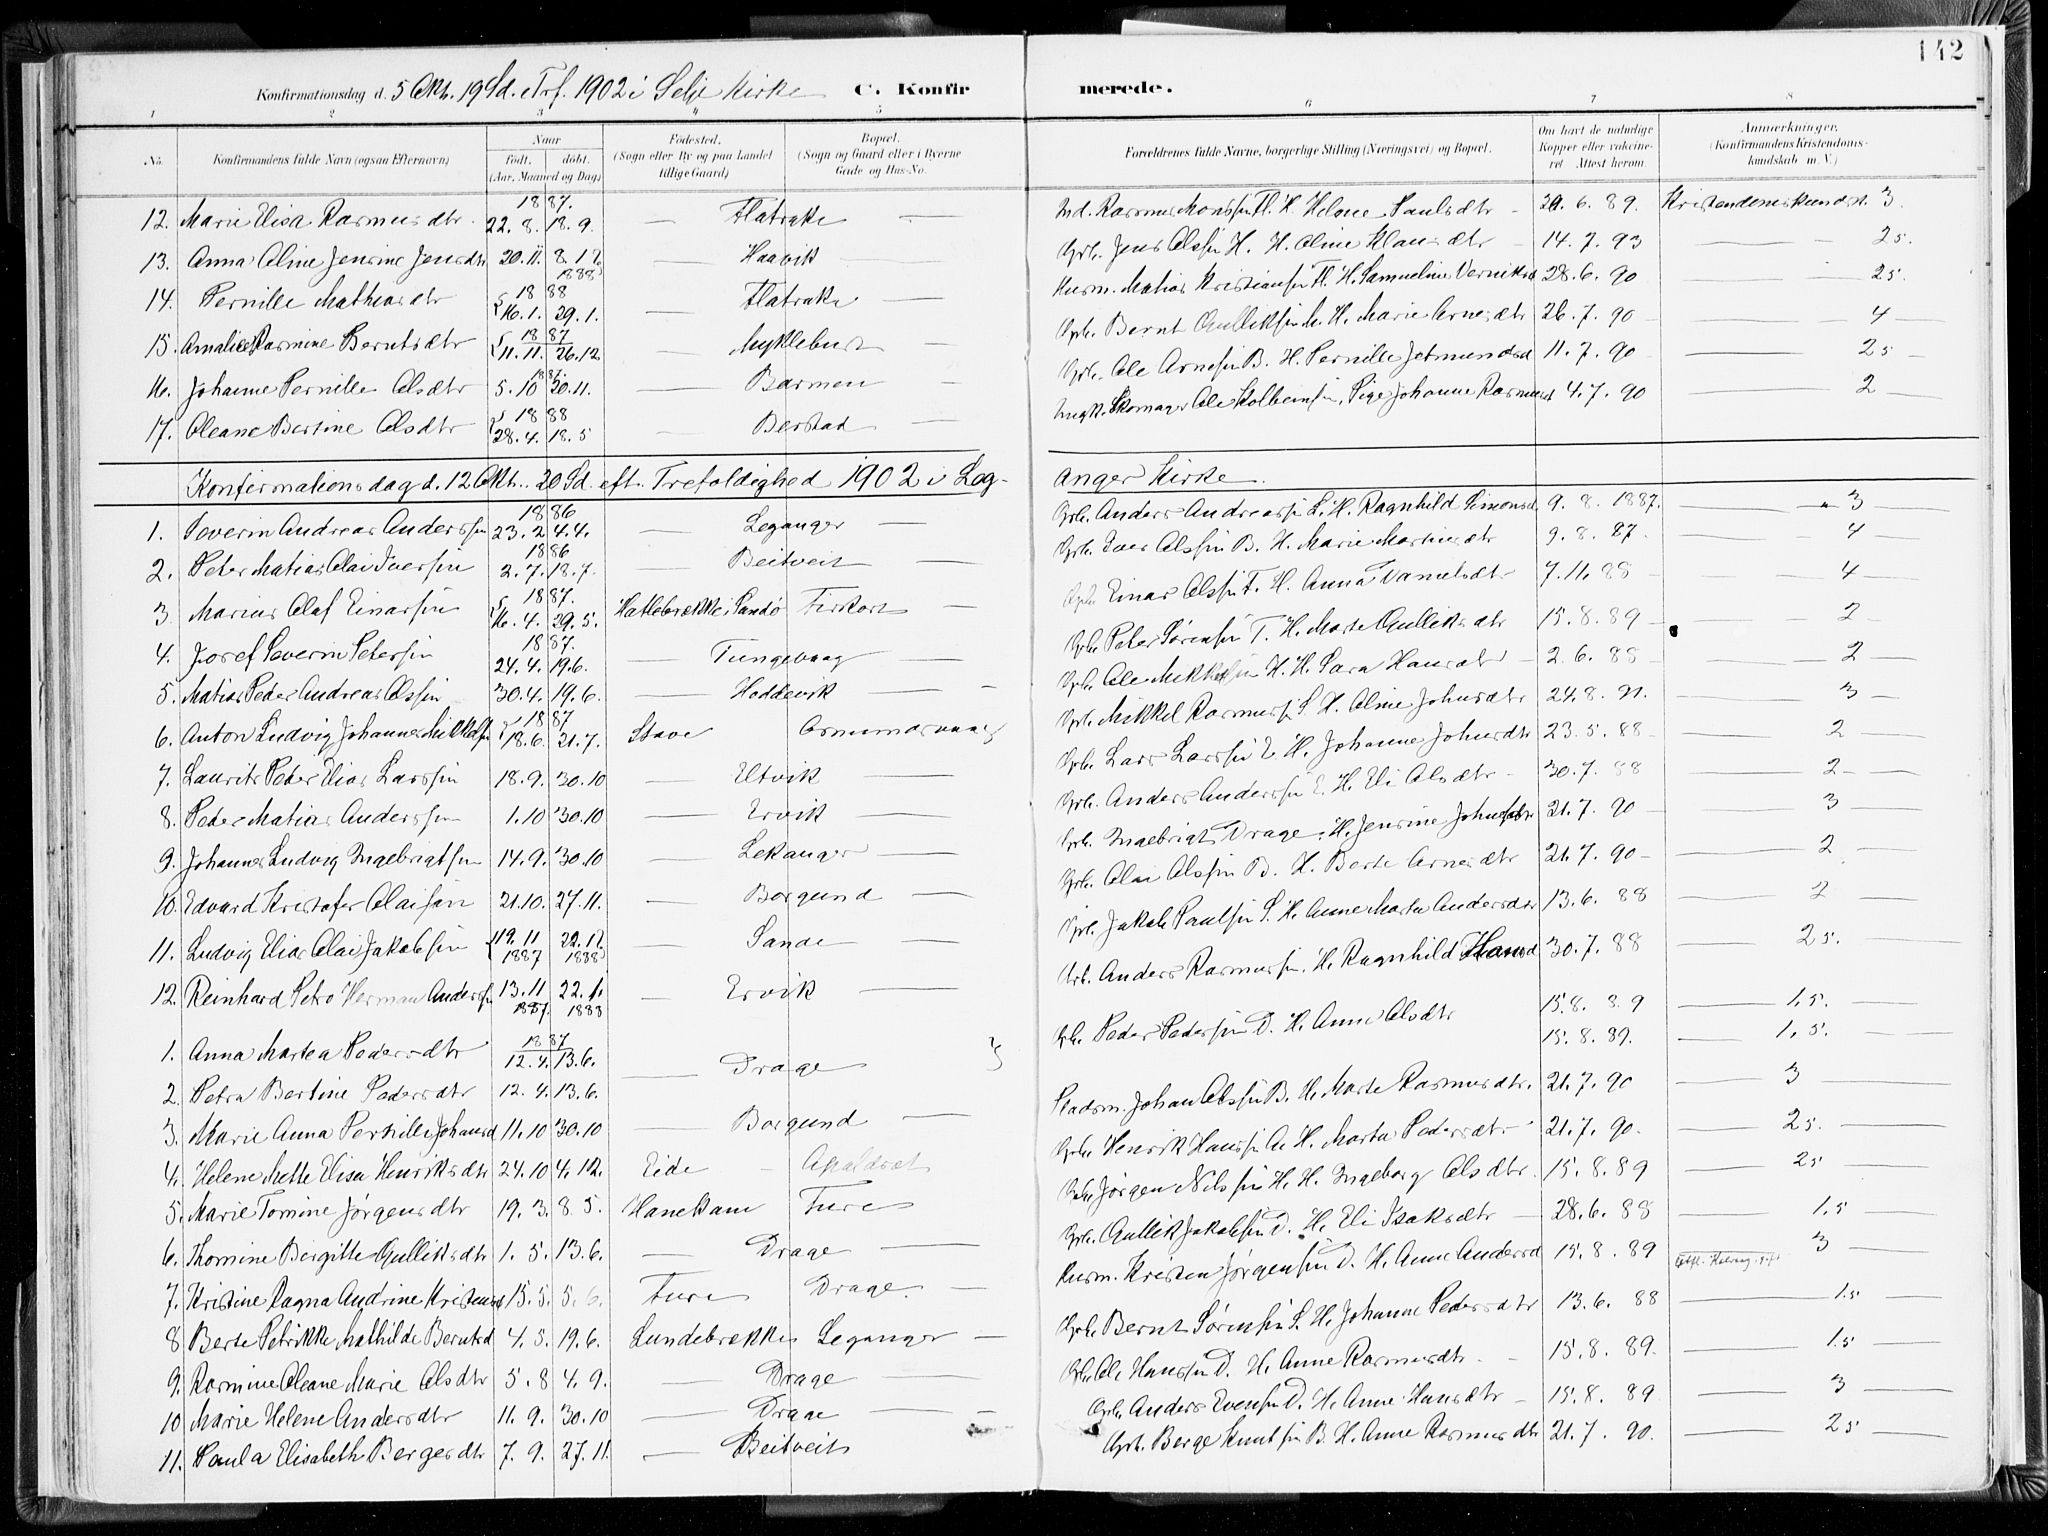 142
Konfirmationsdag d. 5 Okt. 19 Sd. e Trf. 1902 i Selje Kirke C. Konfirmerede.
1 2 3 4 5 6 7 8
No. Konfirmandens fulde Navn (ogsaa Efternavn) Naar født. døbt. (Aar, Maaned og Dag) Fødested. (Sogn eller By og paa Landet tillige Gaard) Bopæl. (Sogn og Gaard eller i Byerne Gade og Hus-No. Forældrenes fulde Navne, borgerlige Stilling (Næringsvei) og Bopæl. Om havt de naturlige Kopper eller vaccineret Attest herom. Anmærkninger. (Konfirmandens Kristendomskundskab m. V.)
12. Marie Elisa Rasmusdtr 1887. 22.8. 18.9. — Flatrake — Ind. Rasmus Monssen Fl. H. Helene Paulsdtr 29.6.89. Kristendomskundsk. 3
13. Anna Oline Jensine Jensdtr 20.11. 8.12 1888 — Haavik — Grb. Jens Olssen H. H. Oline Klausdtr 14.7.93 — 25.
14. Pernille Mathiasdtr 1888 16.1. 29.1. — Flatrake — Husm. Matias Kristiansen Fl. H. Samueline Verniksd 28.6.90 — 25
15. Amalie Rasmine Berntsdtr 1887 11.11. 26.12. — Myklebust — Grb. Bernt Gulliksen M. H. Marie Arnesdtr 26.7.90 — 4
16. Johanne Pernille Olsdtr 1887 5.10 30.11. — Barmen — Grb. Ole Arnesen B. H. Pernille Jetmundsd 11.7.90 — 25
17. Oleane Bertine Olsdtr 1888 28.4. 18.5 — Berstad — Ungk. Skomager Ole Kolbeinsen, Pige Johanne Rasmusd 4.7.90 — 2
Konfirmationsdag d. 12 Okt. 20 Sd. eft. Trefoldighed 1902 i Leganger Kirke.
1. Severin Andreas Anderssen 1886 23.2 4.4. — Leganger — Grb. Anders Andreassen L. H. Ragnhild Simonsd. 9.8.1887. — 3
2. Peter Matias Olai Iversen 1886 2.7. 18.7. — Beitveit — Grb. Iver Olssen B. H. Marie Martinsdtr 9.8.87. — 4
3. Marius Olaf Einarsen 1887. 16.4. 29.5. Haklebrekke i Sandø Fiskaa — Grb. Einar Olssen F. H. Anna Danielsdtr 7.11.88 — 4
4. Josef Severin Petersen 1887. 24.4. 19.6. — Tungevaag — Grb. Peter Sørensen T. H. Marte Gulliksdtr 15.8.89 — 2
5. Matias Peder Andreas Olssen 30.4. 19.6. — Hoddevik — Grb. Ole Mikkelsen H. H. Sara Hansdtr 2.6.88 — 2
6. Anton Ludvig Johannes Mikkelsen 1887 18.6. 21.7. Stave Ormundsvaag Grb. Mikkel Rasmussen S. H. Oline Johnsdtr 24.8.91. — 3
7. Laurits Peter Elias Larssen 18.9. 30.10 — Eltvik — Grb. Lars Larssen E. H. Johanne Johnsdtr 23.5.88 — 2
8. Peder Matias Anderssen 1.10 30.10 — Ervik — Grb. Anders Anderssen E. H. Eli Olsdtr 30.7.88 — 2
9. Johannes Ludvig Ingebrigtsen 14.9. 30.10 — Lekanger — Grb. Ingebrigt Drage. H. Jensine Johnsdtr 21.7.90 — 3
10. Edvard Kristofer Olaisen 21.10. 27.11. — Borgund — Grb. Olai Olssen B. H. Berte Arnesdtr 21.7.90 — 2
11. Ludvig Elias Olai Jakobsen 19.11 1887 22.12 1888 — Sande — Grb. Jakob Paulsen S. H. Anne Marta Andersdtr 13.6.88 — 2
12. Reinhard Petro Herman Anderssen 13.11 1887. 22.1. 1888 — Ervik — Grb. Anders Rasmussen. H. Ragnhild Hansd 30.7.88 — 25.
1. Anna Martea Pedersdtr 1887 12.4. 13.6. — Drage Grb. Peder Pedersen D. H. Anne Olsdtr 15.8.89 — 1,5.
2. Petra Bertine Pedersdtr 12.4. 13.6. 15.8.89. — 1,5.
3. Marie Anna Pernille Johansd 11.10 30.10 — Borgund — Stadsm. Johan Olssen B. H. Marte Rasmusdtr. 21.7.90 — 3
4. Helene Mette Elisa Henriksdtr 24.10 4.12. Eide Apaldset Grb. Henrik Hanssen A. H. Marta Pedersdtr 21.7.90. — 25.
5. Marie Tomine Jørgensdtr 19.3. 8.5. Hanekam Fure Grb. Jørgen Nilssen H. H. Ingeborg Olsdtr. 15.8.89 — 25
6. Thomine Bergitte Gulliksdtr 1.5. 13.6. — Drage — Grb. Gullik Jakobsen D. H. Eli Isaksdtr 28.6.88 — 1.5
7. Kristine Ragna Andrine Kristensd 15.5. 5.6. Fure Drage. — Husm. Kristen Jørgensen D. H. Anne Andersd 15.8.89 — 3
8 Berte Petrikke Mathilde Berntsd 4.5. 19.6. Lundebrekke Leganger — Grb. Bernt Sørensen L. H. Johanne Pedersdtr 13.6.88 — 1.5
9. Rasmine Oleane Marie Olsdtr 5.8 4.9. — Drage — Grb. Ole Hanssen D. H. Anne Rasmusdtr. 15.8.89. — 1.5
10 Marie Helene Andersdtr 11.9. 30.10 — Drage — Grb. Anders Evensen D. H. Anne Hansdtr 15.8.89 — 3
11. Paula Elisabeth Bergesdtr 7.9. 27.11. — Beitveit Grb. Berge Knutsen B. H. Anne Rasmusdtr 21.7.90. — 25